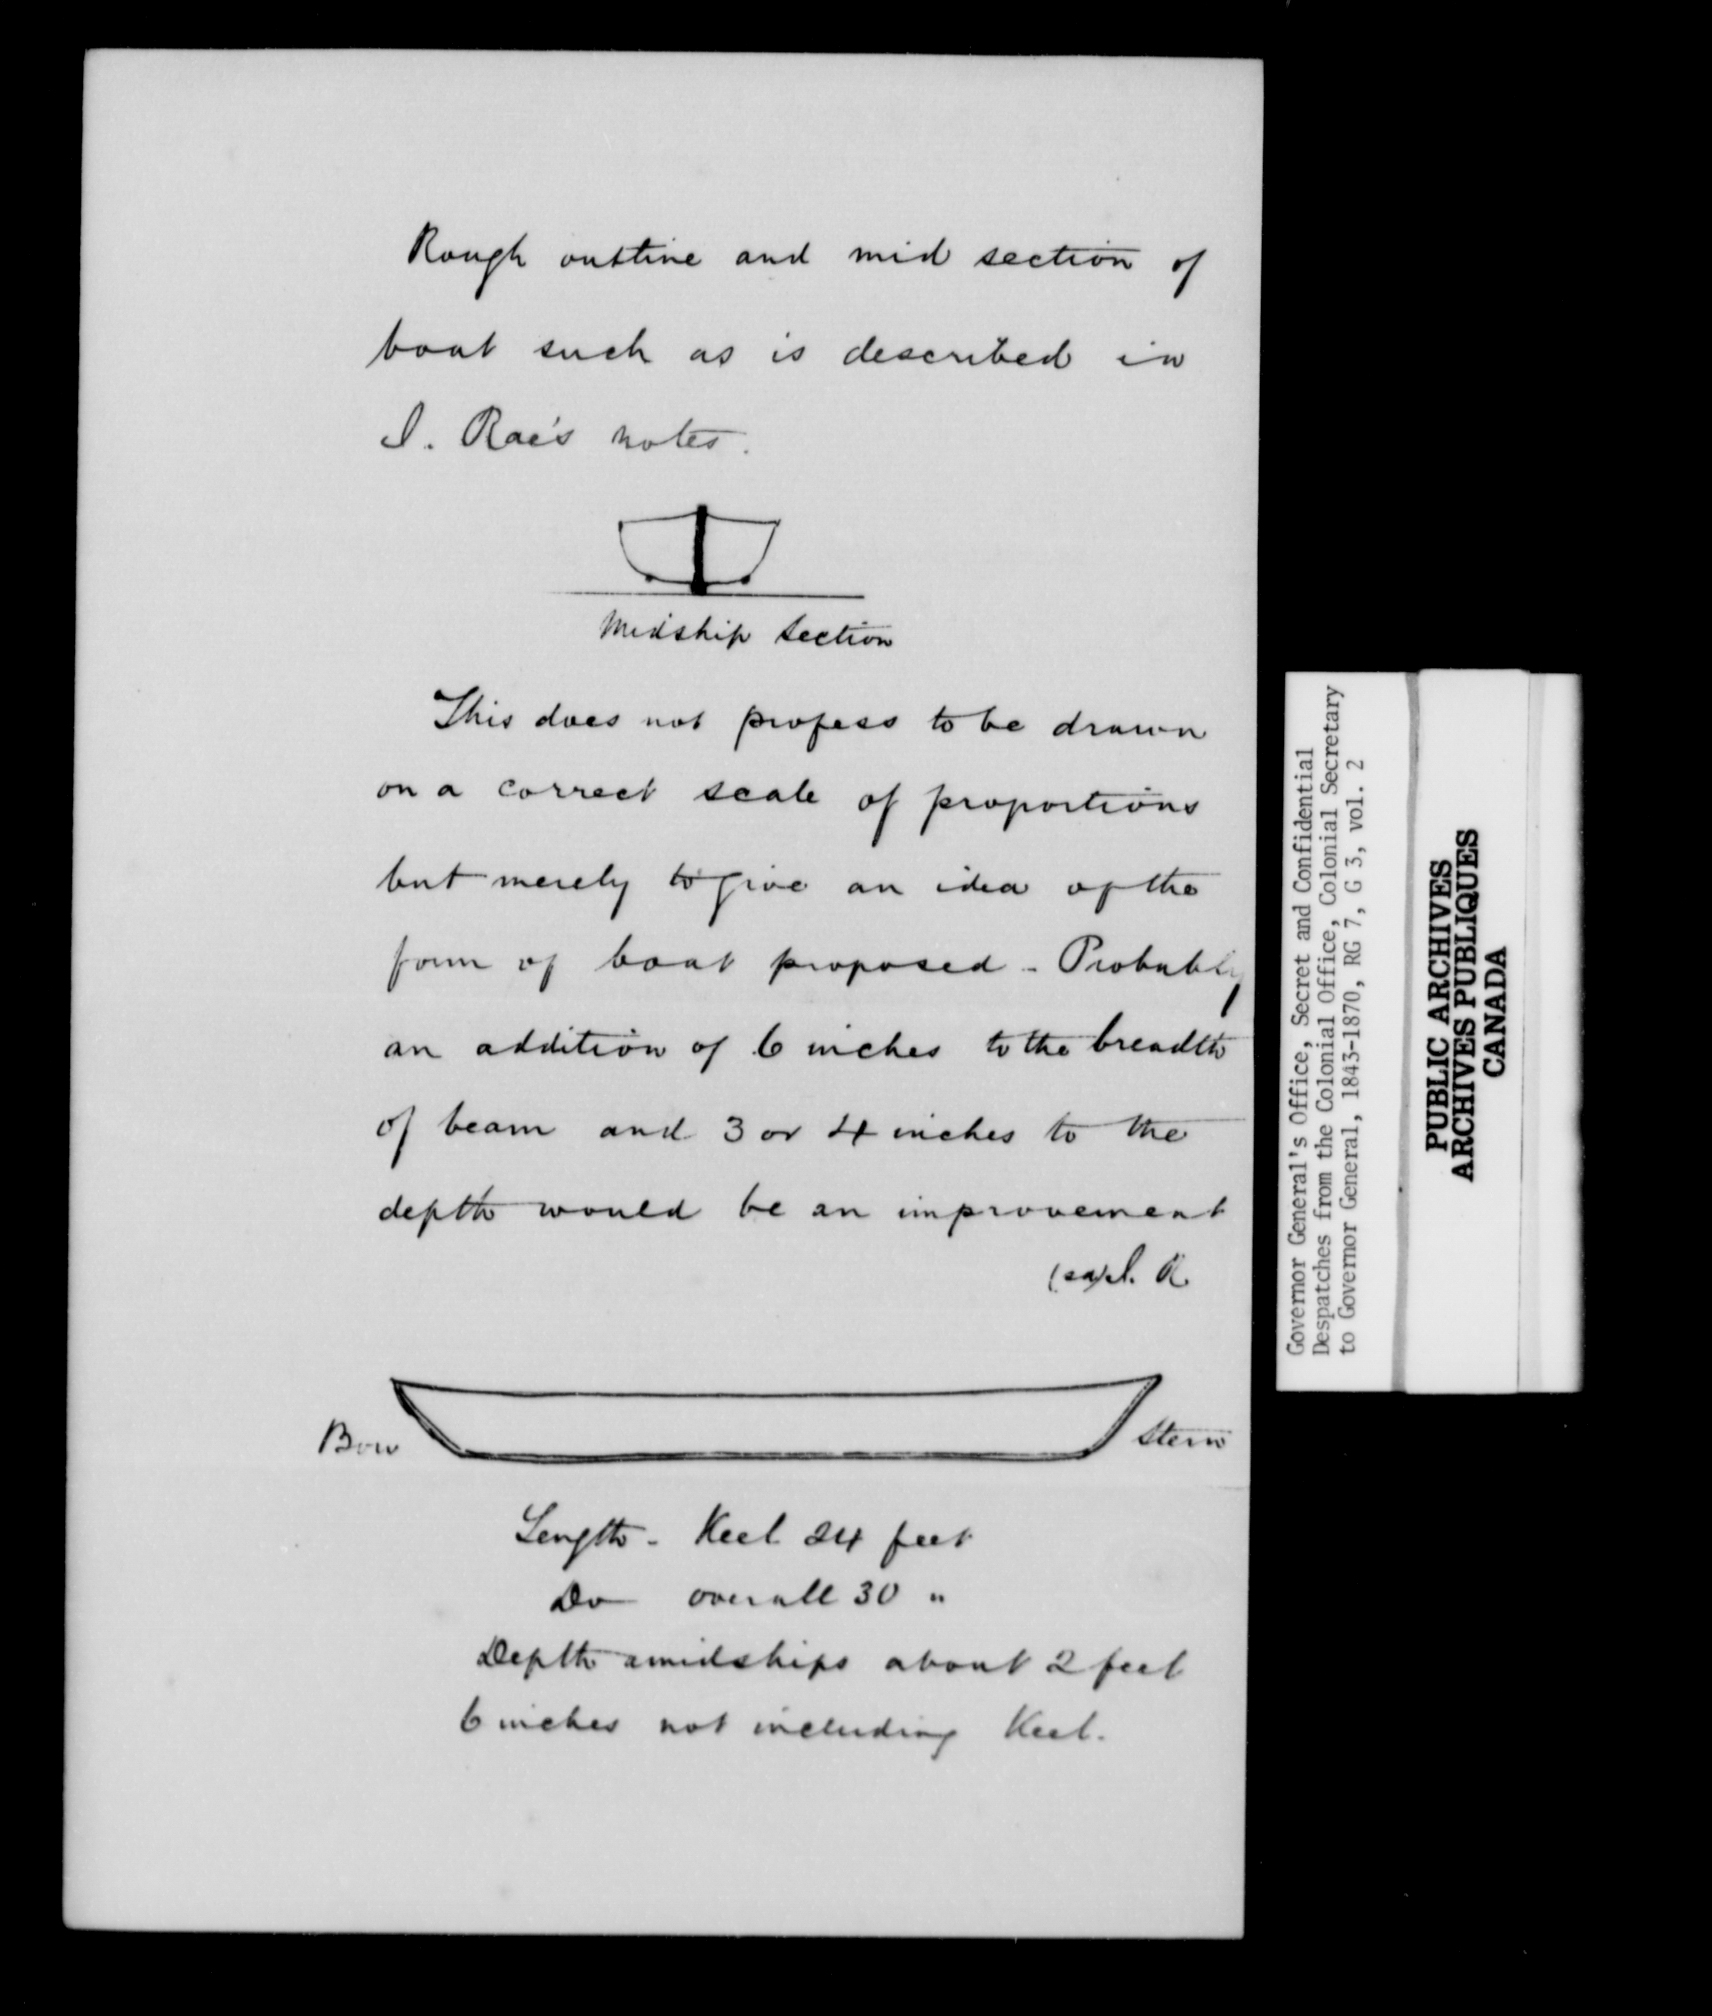 Rough outline and mid section of
boat such as is described in
J. Rae's notes.
Midship Section
This does not profess to be drawn
on a correct scale of proportions
but merely to give an idea of the
form of boat proposed - Probably
an addition of 6 inches to the breadth
of beam and 3 or 4 inches to the
depth would be an improvement
(sd) J. R.
Bow
Stern
Length - Keel 24 feet
Do overall 30 "
Depth amidships about 2 feet
6 inches not including Keel.
Governor General's Office, Secret and Confidential
Despatches from the Colonial Office, Colonial Secretary
to Governor General, 1843-1870, RG 7, G 3, vol. 2
PUBLIC ARCHIVES
ARCHIVES PUBLIQUES
CANADA